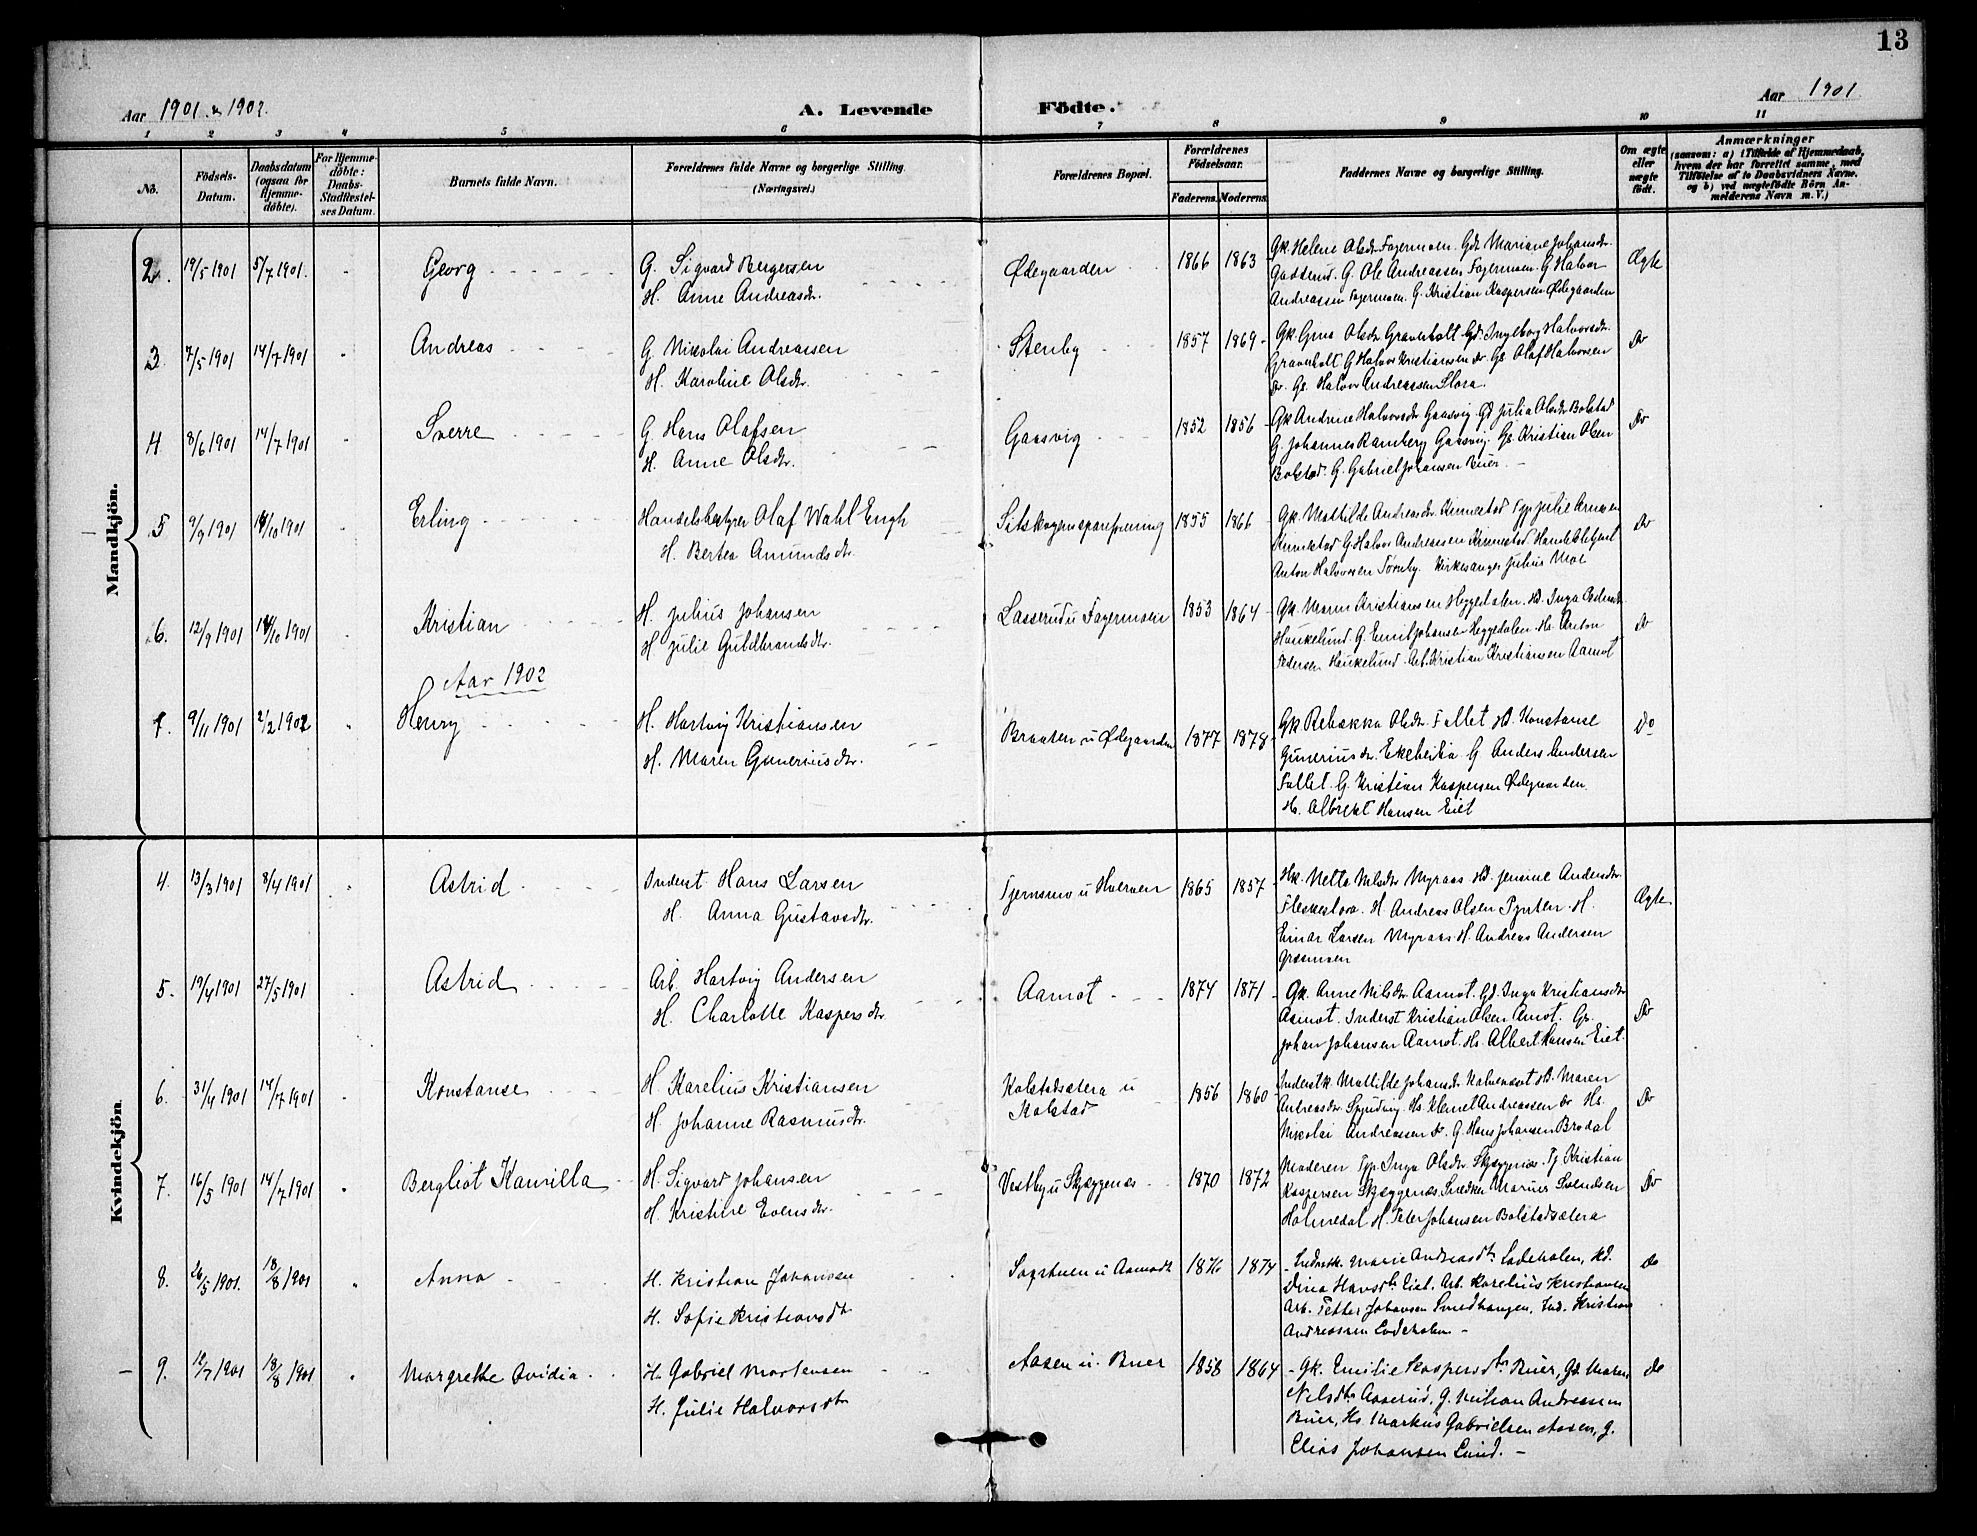 13
Aar 1901 & 1902.
A. Levende
Födte.
Aar 1901
1 2 3 4 5 6 7 8 9 10 11
No.
Födsels-
Datum.
Daabsdatum
(ogsaa for
Hjemme-
döbte).
For Hjemme-
döbte:
Daabs-
Stadfæstel-
ses Datum.
Barnets fulde Navn.
Forældrenes fulde Navne og borgerlige Stilling
(Næringsvei.)
Forældrenes Bopæl.
Forældrenes
Födselsaar.
Faderens. Moderens.
Faddernes Navne og borgerlige Stilling.
Om ægte
eller
uægte
født.
Anmærkninger
(saasom: a) i Tilfælde af Hjemmedaab,
hvem der har forrettet samme, med
Tilföielse af to Daabsvidners Navne.
og b) ved uægtefödte Börn An-
melderens Navn m. V.)
Mandkjön.
2. 19/5 1901 5/7 1901. Georg
G. Sigvard Bergersen
H. Anne Andreasdr.
Ødegaarden 1866 1863
Gk. Helene Olsdr Fagermoen. Gdr Mariane Johansdr.
Gaaserud. G. Ole Andreassen Fagermoen. G Halvor
Andreassen Fagermoen. G. Kristian Kaspersen Ødegaarden
Ægte
3. 7/5 1901 14/7 1901 Andreas
G Nikolai Andreassen
H. Karoline Olsdr.
Stenby 1857 1869
Gk. Olsdr Gravholt. Gd. Ingeborg Halvorsdr.
Gravholt G Halvor Kristiansen do. Gs. Olaf Halvorsen
do. Gs. Halvor Andreassen Slora.
Do
4 8/6 1901 14/7 1901 Sverre
G Hans Olafsen
H. Anne Olsdr.
Gaasvig 1852 1856
Gk Andrine Halvorsdr Gaasvig. Gd Julia Olsdr Bolstad
G Johannes Ramberg Gaasvig. Gs. Kristian Olsen
Bolstad. G. Gabriel Johansen Buer.
Do
5 9/9 1901 14/10 1901 Erling
Handelsbestyrer Olaf Wahl Engh
H. Bertea Amundsdr.
1855 1866
Gk. Mathilde Andreasdr. Kinnestad Julie
Kinnestad G Halvor Andreassen Kinnestad
Anton Halvorsen Tørnby. Kirkesanger Julius Moe
Do
6. 12/9 1901 14/10 1901 Kristian
H. Julius Johansen
H Julie Guldbrandsdr.
Lasserud u Fagermoen 1853 1864
Gk. Maren Kristiansen Heggedalen. Hd. Inga Pedersdr
Haukelund. G. Emil Johansen Heggedalen Hs. Anton
Pedersen Haukelund. Arb. Kristian Kristiansen Aamot
Do
Aar 1902
1. 9/11 1901 2/2 1902 Henry
H. Hartvig Kristiansen
H. Maren Guneriusdr.
Braaten u Ødegaarden 1877 1878
Gk Rebakka Olsdr. Fallet Hd. Konstanse
Guneriusdr. G Anders Andersen
Fallet. G. Kristian Kaspersen Ødegaarden.
Hs. Albrekt Hansen Eiet
Do
Kvindekjön.
4. 13/3 1901 8/4 1901 Astrid
Inderst Hans Larsen
H. Anna Gustavsdr.
Tjernsmo u Hverven 1865 1857
Hk. Netta Nilsdr Myraas Hd. Jensine Andersdr.
H. Andreas Olsen H.
Einar Larsen Myraas H. Andreas Andersen
Græsmoen
Ægte
5. 19/4 1901 27/5 1901 Astrid
Arb. Hartvig Andersen
H. Charlotte Kaspersdr.
Aamot 1874 1871
Gk. Anne Nilsdr. Aamot. Gd. Inga Kristiansdr
Aamot. Inderst Kristian Olsen Amot. Gs.
Johan Johansen Aamot. Hs. Albert Hansen Eiet.
Do
6. 31/4 1901 14/7 1901 Konstanse
H Karelius Kristiansen
H. Johanne Rasmusdr.
Kolstadsætera u
Kolstad
1856 1860
Inderstk. Mathilde Johansdr Hd. Maren
Andreasdr. Hs. Klemet Andreassen do Hs.
Nikolai Andreassen do. G. Hans Johansen Brodal
Do
7. 16/5 1901 14/7 1901 Bergliot Kamilla
H. Sigvard Johansen
H. Kristine Evensdr.
Vestby u Skjæggenæs 1870 1872
Moderen Tp. Inga Olsdr. Skjæggenæs. Tj Kristian
Kaspersen Skjæggenæs. Snedker Marius Svendsen
Holmedal H. Peter Johansen Bolstadsætera
Do
8. 26/5 1901. 18/8 1901 Anna
H. Kristian Johansen
H. Sofie Kristiansdtr
u Aamodt 1876 1874
Inderstk. Marie Andreasdtr. Ladeholen, Hd.
Dina Hansdtr. Eiet. Arb. Karelius Kristiansen
Arb. Petter Johansen Sundhaugen, Ind. Kristian
Andreassen Ladeholen
do
9. 12/7 1901 18/8 1901 Margrethe Ovidia
H. Gabriel Mortensen
H. Julie Halvorsdtr
Aasen u. Buer 1858 1864
Gk. Emilie Kaspersdtr. Buer, Gd. Maren
Nilsdtr. Aaserud, G. Kristian Andreassen
Buer, Hs. Markus Gabrielsen Aasen, G.
Elias Johansen Lund.
do